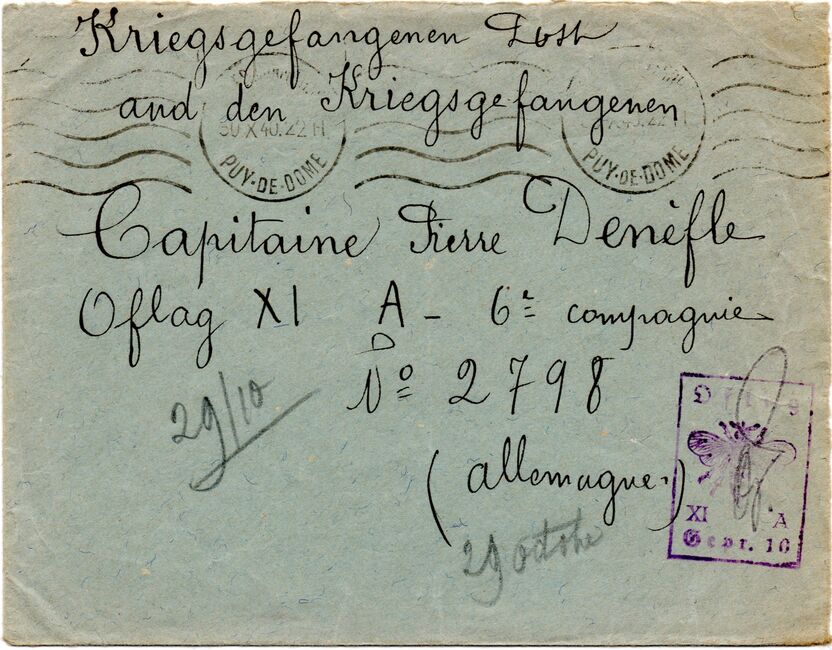 Kriegsgefangenen Post
and den Kriegsgefangenen
30 X 40. 22 H
PUY-DE-DOME
PUY-DE-DOME
Capitaine Pierre Denèfle
Oflag XI A - 6e compagnie
No 2798
29/10
(Allemagne.)
29 octobre
Oflag
XI A
Gepr. 10